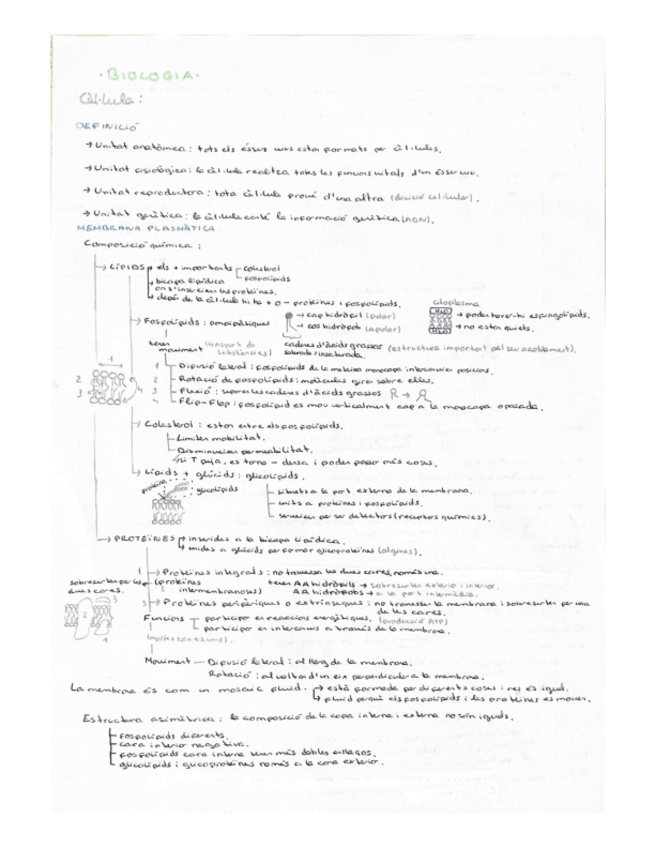 · BIOLOGIA ·
Cèl·lula:
DEFINICIÓ
→ Unitat anatòmica: tots els éssers vius estan formats per cèl·lules.
→ Unitat fisiològica: la cèl·lula realitza totes les funcions vitals d'un ésser viu.
→ Unitat reproductora: tota cèl·lula prové d'una altra (divisió cel·lular).
→ Unitat genètica: la cèl·lula conté la informació genètica (ADN).
MEMBRANA PLASMÀTICA
Composició química:
→ LÍPIDS → els + importants colesterol
fosfolípids
→ bicapa lipídica
on s'insereixen les proteïnes.
→ depèn de la cèl·lula hi ha + o - proteïnes i fosfolípids.
citoplasma
→ Fosfolípids: amfipàtiques
→ cap hidròfil (polar)
→ cos hidròfob (apolar)
→ poden haver-hi esfingolípids.
→ no estan quiets.
tenen moviment (transport de substàncies)
cadenes d'àcids grassos saturada/insaturada. (estructura important pel seu acoblament).
1 Difusió lateral: fosfolípids de la mateixa monocapa intercanvien posicions.
2 Rotació de fosfolípids: molècules giren sobre elles.
3 Flexió: separa les cadenes d'àcids grassos
4 Flip-Flop: fosfolípid es mou verticalment cap a la monocapa oposada.
→ Colesterol: estan entre els fosfolípids.
Limiten mobilitat.
Disminueixen permeabilitat.
→ si T puja, es torna - densa i poden passar més coses.
→ Lípids + glúcids: glicolípids.
proteïna
glicolípids
situats a la part externa de la membrana.
units a proteïnes i fosfolípids.
serveixen per ser detectors (receptors químics).
→ PROTEÏNES → inserides a la bicapa lipídica.
→ unides a glúcids per formar glicoproteïnes (algunes).
1 → Proteïnes integrals: no travessa les dues cares, només una.
sobresurten per les dues cares. 2 (proteïnes intermembranoses)
tenen AA hidròfils → sobresurten exterior i interior.
AA hidròfobs → a la part intermèdia.
3 → Proteïnes perifèriques o extrínseques: no travessen la membrana i sobresurten per una de les cares.
Funcions participar en reaccions energètiques. (producció ATP)
participar en intercanvis a través de la membrana.
Moviment — Difusió lateral: al llarg de la membrana.
Rotació: al voltant d'un eix perpendicular a la membrana.
La membrana és com un mosaic fluid. → està formada per diferents coses i res és igual.
→ fluid perquè els fosfolípids i les proteïnes es mouen.
Estructura asimètrica: la composició de la capa interna i externa no són iguals.
fosfolípids diferents.
cara interior negativa.
fosfolípids cara interna tenen més dobles enllaços.
glicolípids i glicoproteïnes només a la cara exterior.